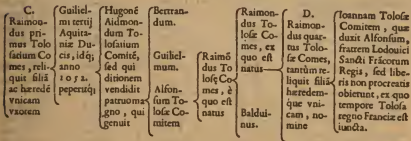 C.
Raimon-
dus pri-
mus Tolo
satium Co
mes, reli-
quit filiã
ac hæredẽ
vnicam
vxorem
Guiliel-
mi tertij
Aquita-
niæ Du-
cis, idq́;
anno
1052.
peperitq́;
Hugonẽ
Aidmon-
dum To-
losatium
Comitẽ,
sed qui
ditionem
vendidit
patruoma
gno, qui
genuit
Bertran-
dum.
Guiliel-
mum.
Alfon-
sum To-
losæ Co-
mitem
Raimõ
dus To
losę Co-
mes, è
quo est
natus
Raimon-
dus To-
losæ Co-
mes, ex
quo est
natus
Baldui-
nus.
D.
Raimon-
dus quar-
tus Tolo-
sæ Comes,
tantùm re-
liquit filiã
hæredem-
que vni-
cam, no-
mine
Ioannam Tolosæ
Comitem, quæ
duxit Alfonsum,
fratrem Lodouici
Sancti Frãcorum
Regis, sed libe-
ris non procreatis
obierunt, ex quo
tempore Tolosa
regno Franciæ est
iuncta.